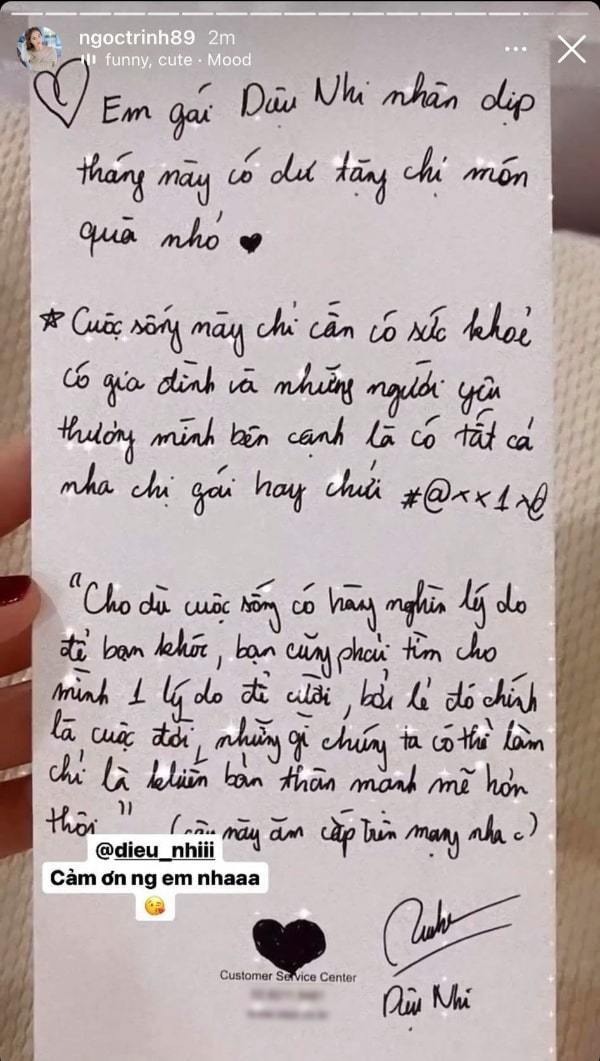 ngoctrinh89 2m
funny, cute · Mood
Em gái Diệu Nhi nhân dịp
tháng này có dư tặng chị món
quà nhỏ
Cuộc sống này chỉ cần có sức khoẻ
có gia đình và những người yêu
thương mình bên cạnh là có tất cả
nha chị gái hay chửi #@××1×@
"Cho dù cuộc sống có hàng nghìn lý do
để bạn khóc, bạn cũng phải tìm cho
mình 1 lý do để cười, bởi lẽ đó chính
là cuộc đời, những gì chúng ta có thể làm
chỉ là khiến bản thân mạnh mẽ hơn
thôi" (câu này ăn cắp trên mạng nha c)
@dieu_nhiii
Cảm ơn ng em nhaaa
Customer Service Center
Diệu Nhi